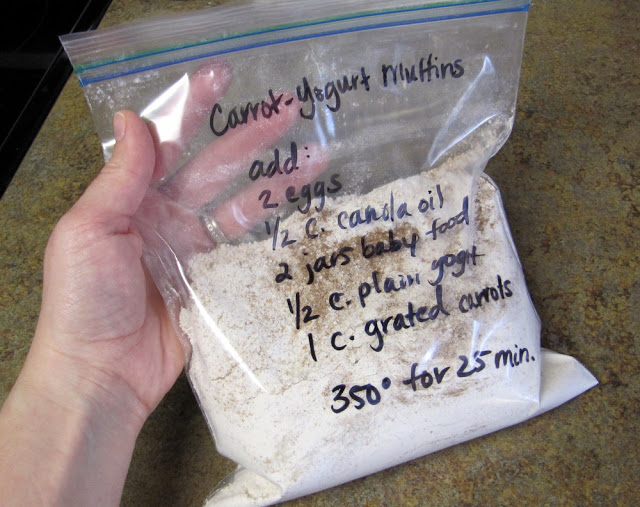 Carrot-Yogurt Muffins
add:
2 eggs
1/2 c. canola oil
2 jars baby food
1/2 c. plain yogrt
1 c. grated carrots
350° for 25 min.